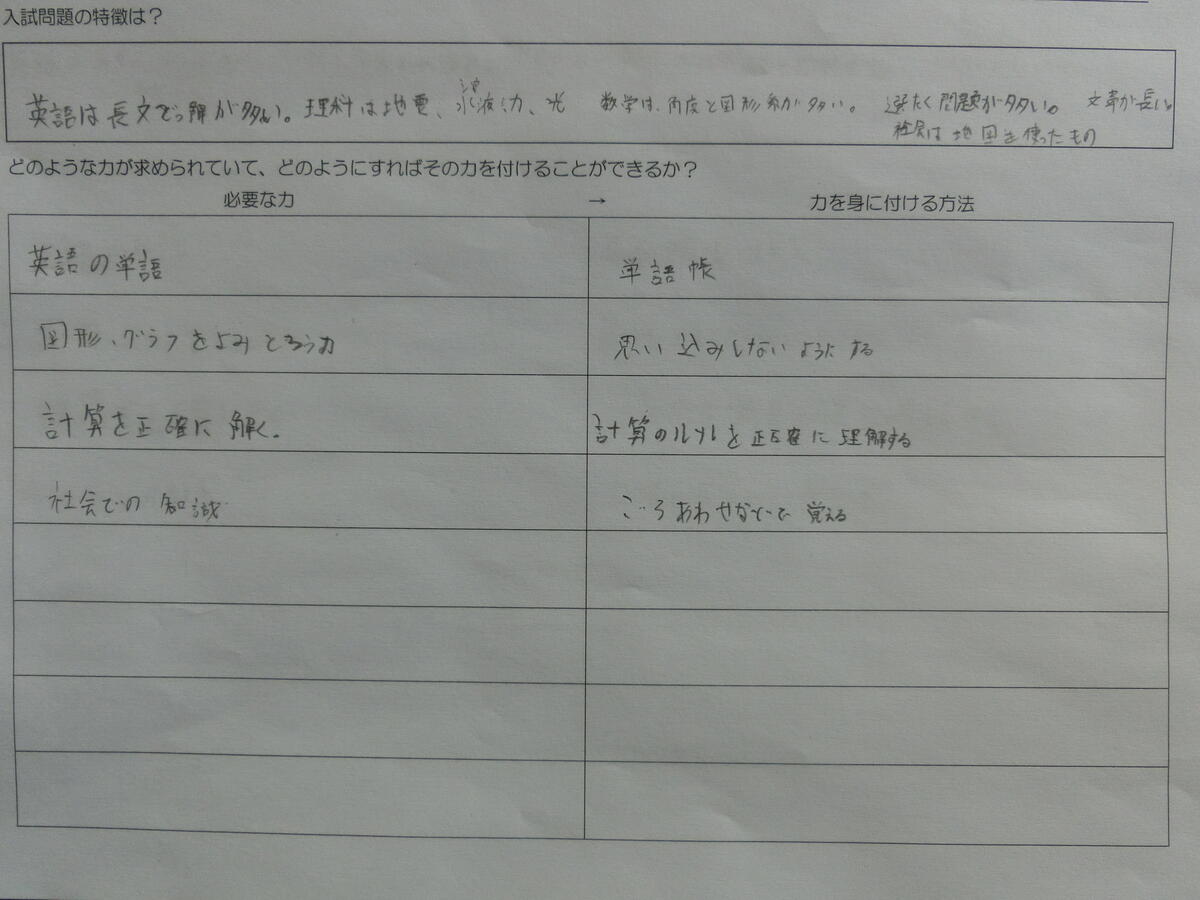 入試問題の特徴は?
英語は長文で読解が多い。理科は地電、力、光 数学は、角度と図形系が多い。 選たく問題が多い。 文章が長い。
社会は地図を使ったもの
どのような力が求められていて、どのようにすればその力を付けることができるか?
必要な力 → 力を身に付ける方法
英語の単語 単語帳
図形、グラフをよみとる力 思い込みしないようにする
計算を正確に解く。 計算のルールを正確に理解する
社会での知識 ごろあわせなどで覚える